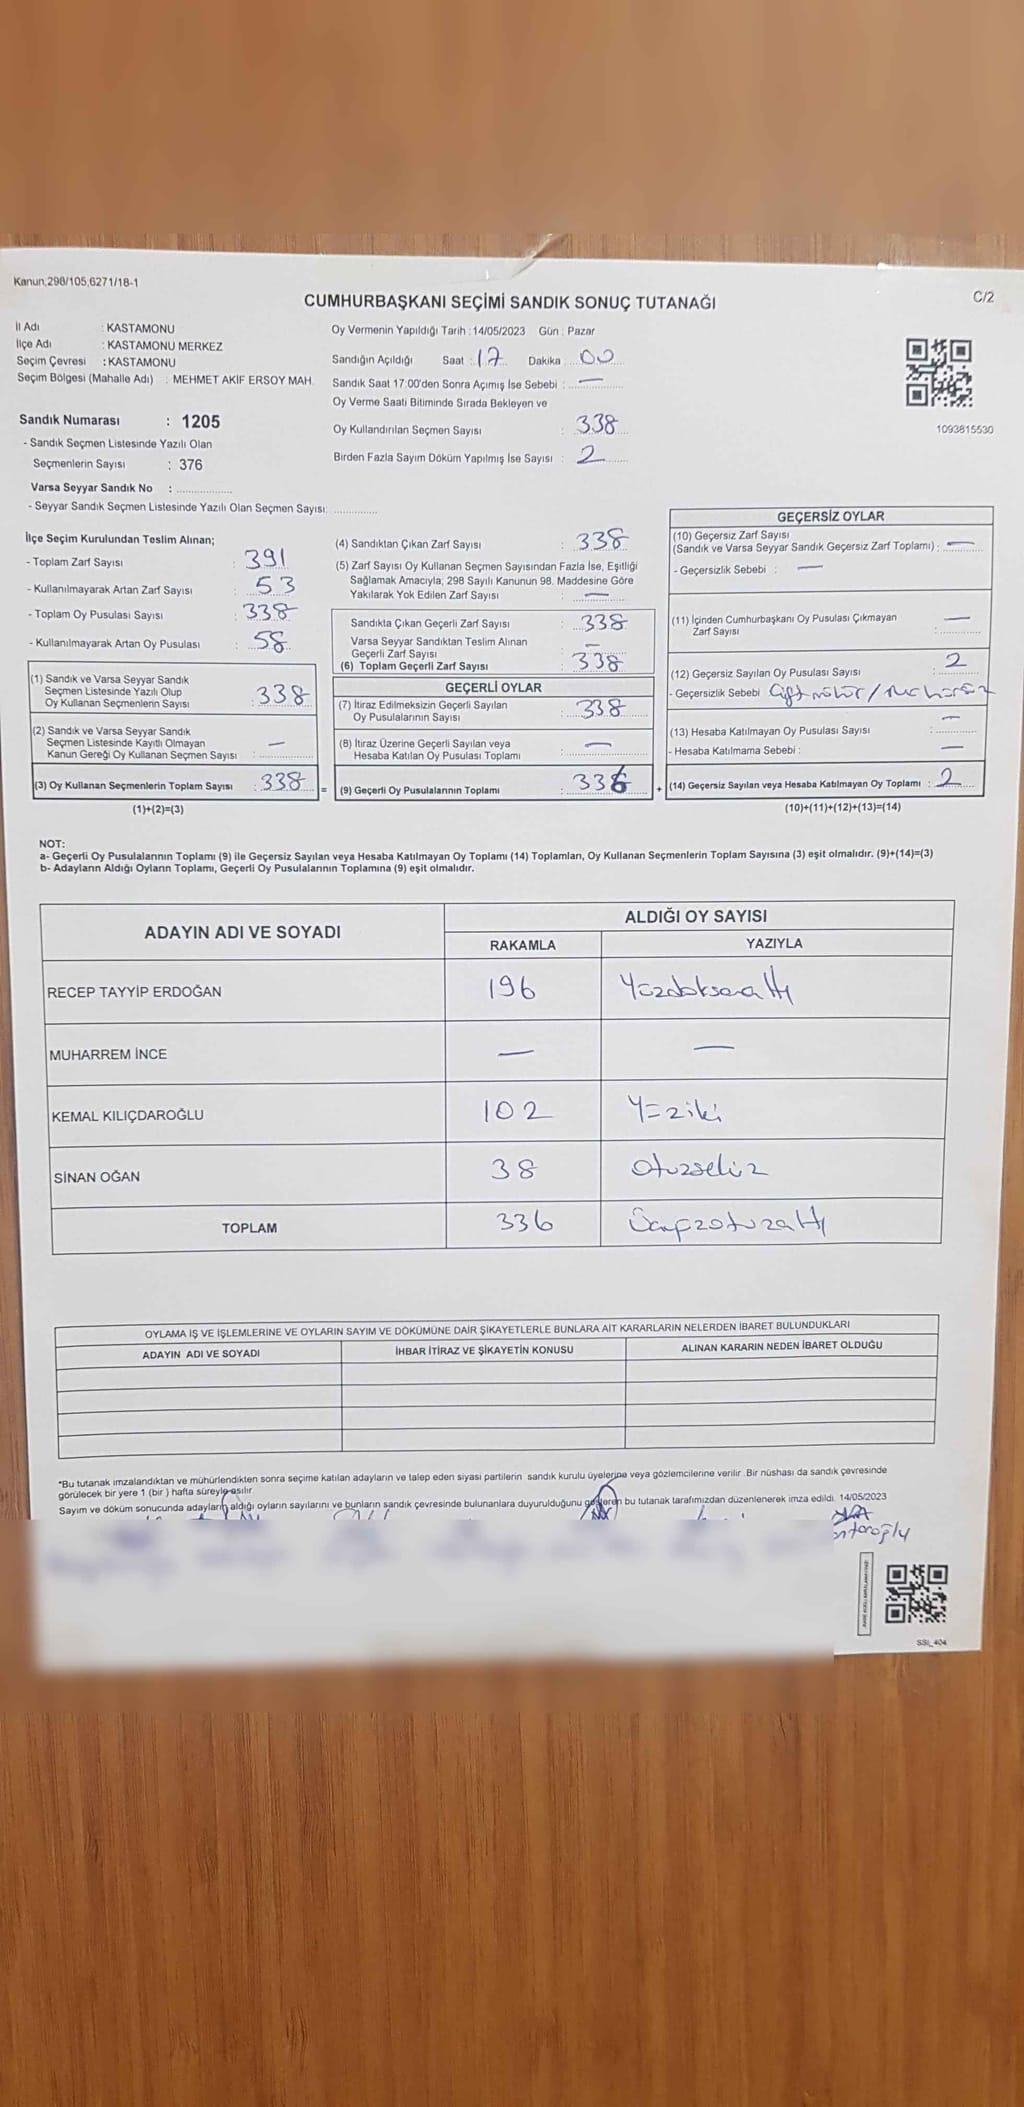 Kanun,298/105,6271/18-1
CUMHURBAŞKANI SEÇİMİ SANDIK SONUÇ TUTANAĞI
C/2
İl Adı : KASTAMONU
İlçe Adı : KASTAMONU MERKEZ
Seçim Çevresi : KASTAMONU
Seçim Bölgesi (Mahalle Adı) : MEHMET AKİF ERSOY MAH.
Oy Vermenin Yapıldığı Tarih : 14/05/2023 Gün : Pazar
Sandığın Açıldığı Saat : 17 Dakika : 00
Sandık Saat 17:00'den Sonra Açımış İse Sebebi : —
Oy Verme Saati Bitiminde Sırada Bekleyen ve
Oy Kullandırılan Seçmen Sayısı : 338
Birden Fazla Sayım Döküm Yapılmış İse Sayısı : 2
1093815530
Sandık Numarası : 1205
- Sandık Seçmen Listesinde Yazılı Olan
Seçmenlerin Sayısı : 376
Varsa Seyyar Sandık No : ..................
- Seyyar Sandık Seçmen Listesinde Yazılı Olan Seçmen Sayısı: ..............
İlçe Seçim Kurulundan Teslim Alınan;
- Toplam Zarf Sayısı : 391
- Kullanılmayarak Artan Zarf Sayısı : 53
- Toplam Oy Pusulası Sayısı : 338
- Kullanılmayarak Artan Oy Pusulası : 58
(1) Sandık ve Varsa Seyyar Sandık
Seçmen Listesinde Yazılı Olup
Oy Kullanan Seçmenlerin Sayısı : 338
(2) Sandık ve Varsa Seyyar Sandık
Seçmen Listesinde Kayıtlı Olmayan
Kanun Gereği Oy Kullanan Seçmen Sayısı : —
(3) Oy Kullanan Seçmenlerin Toplam Sayısı : 338 =
(1)+(2)=(3)
(4) Sandıktan Çıkan Zarf Sayısı : 338
(5) Zarf Sayısı Oy Kullanan Seçmen Sayısından Fazla İse, Eşitliği
Sağlamak Amacıyla; 298 Sayılı Kanunun 98. Maddesine Göre
Yakılarak Yok Edilen Zarf Sayısı : —
Sandıkta Çıkan Geçerli Zarf Sayısı : 338
Varsa Seyyar Sandıktan Teslim Alınan
Geçerli Zarf Sayısı : —
(6) Toplam Geçerli Zarf Sayısı : 338
GEÇERLİ OYLAR
(7) İtiraz Edilmeksizin Geçerli Sayılan
Oy Pusulalarının Sayısı : 338
(8) İtiraz Üzerine Geçerli Sayılan veya
Hesaba Katılan Oy Pusulası Toplamı : —
(9) Geçerli Oy Pusulalarının Toplamı : 336 +
GEÇERSİZ OYLAR
(10) Geçersiz Zarf Sayısı
(Sandık ve Varsa Seyyar Sandık Geçersiz Zarf Toplamı) : —
- Geçersizlik Sebebi : —
(11) İçinden Cumhurbaşkanı Oy Pusulası Çıkmayan
Zarf Sayısı : —
(12) Geçersiz Sayılan Oy Pusulası Sayısı : 2
- Geçersizlik Sebebi Çift mühür / mühürsüz
(13) Hesaba Katılmayan Oy Pusulası Sayısı : —
- Hesaba Katılmama Sebebi : —
(14) Geçersiz Sayılan veya Hesaba Katılmayan Oy Toplamı : 2
(10)+(11)+(12)+(13)=(14)
NOT:
a- Geçerli Oy Pusulalarının Toplamı (9) ile Geçersiz Sayılan veya Hesaba Katılmayan Oy Toplamı (14) Toplamları, Oy Kullanan Seçmenlerin Toplam Sayısına (3) eşit olmalıdır. (9)+(14)=(3)
b- Adayların Aldığı Oyların Toplamı, Geçerli Oy Pusulalarının Toplamına (9) eşit olmalıdır.
ADAYIN ADI VE SOYADI
ALDIĞI OY SAYISI
RAKAMLA YAZIYLA
RECEP TAYYİP ERDOĞAN 196 Yüzdoksanaltı
MUHARREM İNCE — —
KEMAL KILIÇDAROĞLU 102 Yüziki
SİNAN OĞAN 38 Otuzsekiz
TOPLAM 336 Üçyüzotuzaltı
OYLAMA İŞ VE İŞLEMLERİNE VE OYLARIN SAYIM VE DÖKÜMÜNE DAİR ŞİKAYETLERLE BUNLARA AİT KARARLARIN NELERDEN İBARET BULUNDUKLARI
ADAYIN ADI VE SOYADI İHBAR İTİRAZ VE ŞİKAYETİN KONUSU ALINAN KARARIN NEDEN İBARET OLDUĞU
*Bu tutanak imzalandıktan ve mühürlendikten sonra seçime katılan adayların ve talep eden siyasi partilerin sandık kurulu üyelerine veya gözlemcilerine verilir. Bir nüshası da sandık çevresinde
görülecek bir yere 1 (bir ) hafta süreyle asılır.
Sayım ve döküm sonucunda adayların aldığı oyların sayılarını ve bunların sandık çevresinde bulunanlara duyurulduğunu gösteren bu tutanak tarafımızdan düzenlenerek imza edildi. 14/05/2023
SSI_404